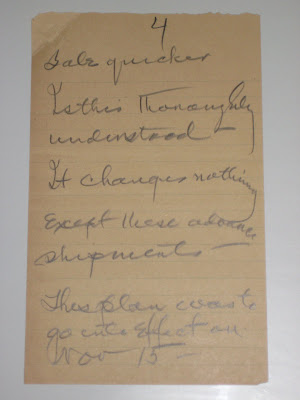 4
Sale quicker
Is this Thoroughly
understood —
It changes nothing
Except these advance
shipments —
This plan was to
go into Effect on
Nov 15 —